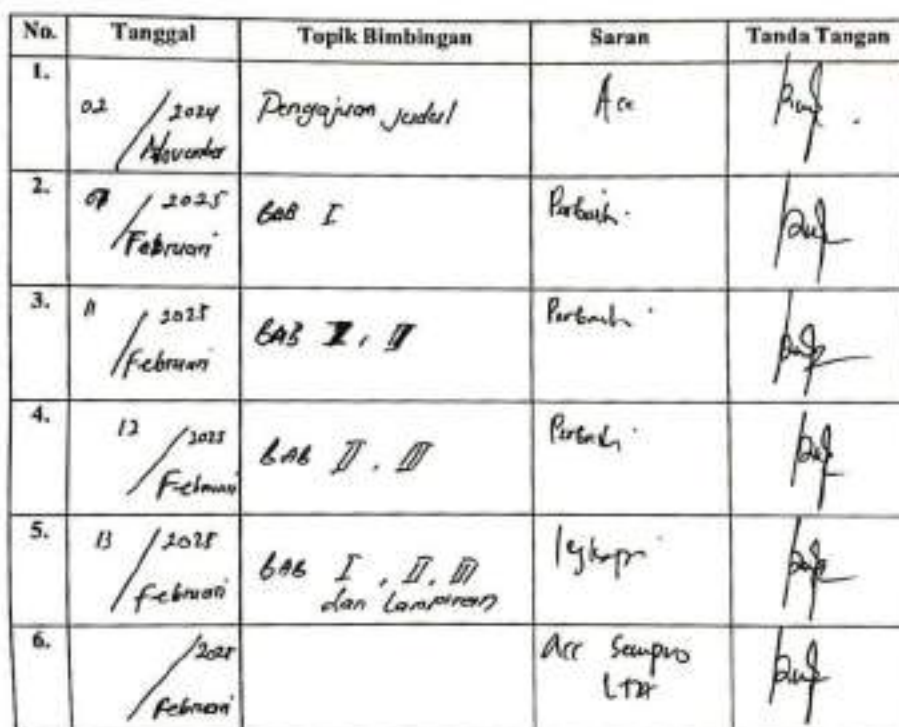 No. Tanggal Topik Bimbingan Saran Tanda Tangan
1. 02 / 2024 November Pengajuan judul Acc
2. / 2025 Februari BAB I Perbaiki
3. 11 / 2025 Februari BAB II, III Perbaiki
4. 12 / 2025 Februari BAB II, III Perbaiki
5. 13 / 2025 Februari BAB I, II, III
dan Lampiran
6. / 2025 Februari Acc Sempro
LTA